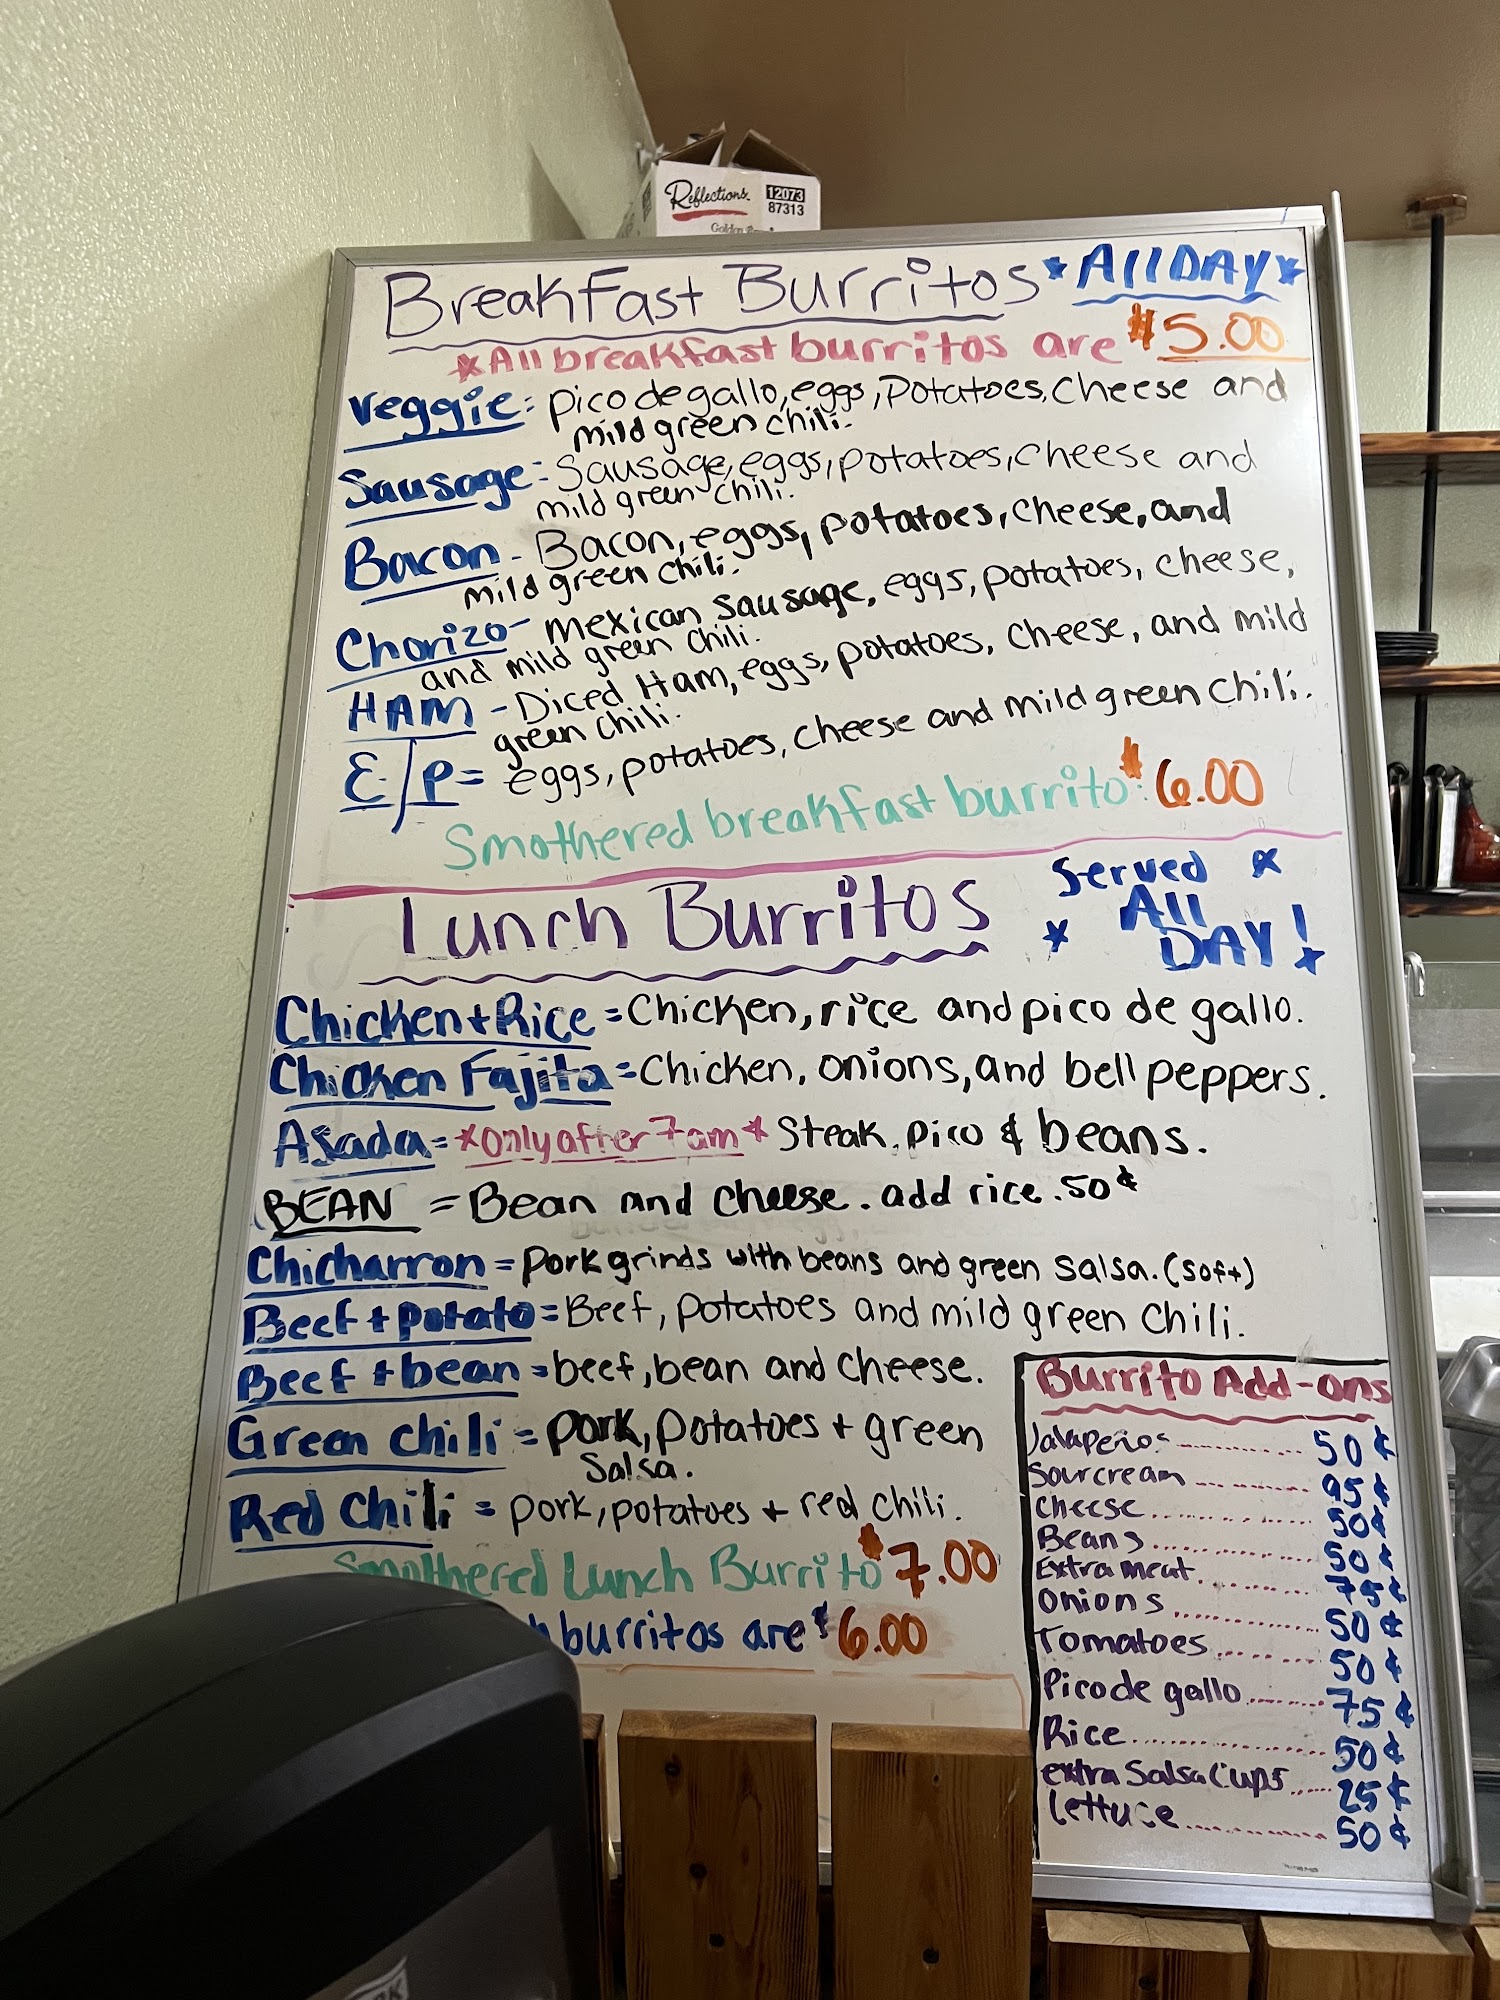 Reflections
12073
87313
Golden
Breakfast Burritos *All DAY*
*All breakfast burritos are $5.00
Veggie: pico de gallo, eggs, Potatoes, Cheese and
mild green chili.
Sausage: Sausage, eggs, potatoes, cheese and
mild green chili.
Bacon - Bacon, eggs, potatoes, cheese, and
mild green chili.
Chorizo - Mexican Sausage, eggs, potatoes, cheese,
and mild green chili.
HAM - Diced Ham, eggs, potatoes, cheese, and mild
green chili.
E/P = eggs, potatoes, cheese and mild green chili.
Smothered breakfast burrito: $6.00
Lunch Burritos
Served *
* All
DAY! *
Chicken + Rice = Chicken, rice and pico de gallo.
Chicken Fajita = Chicken, onions, and bell peppers.
Asada = *only after 7am* Steak, pico & beans.
BEAN = Bean and cheese. add rice .50¢
Chicharron = Pork grinds with beans and green salsa. (soft)
Beef + potato = Beef, potatoes and mild green chili.
Beef + bean = beef, bean and cheese.
Green chili = pork, potatoes + green
Salsa.
Red Chili = pork, potatoes + red chili.
Smothered Lunch Burrito $7.00
burritos are $6.00
Burrito Add-ons
Jalapeños 50¢
Sour cream 95¢
Cheese 50¢
Beans 50¢
Extra meat 75¢
Onions 50¢
Tomatoes 50¢
Pico de gallo 75¢
Rice 50¢
extra Salsa Cups 25¢
lettuce 50¢